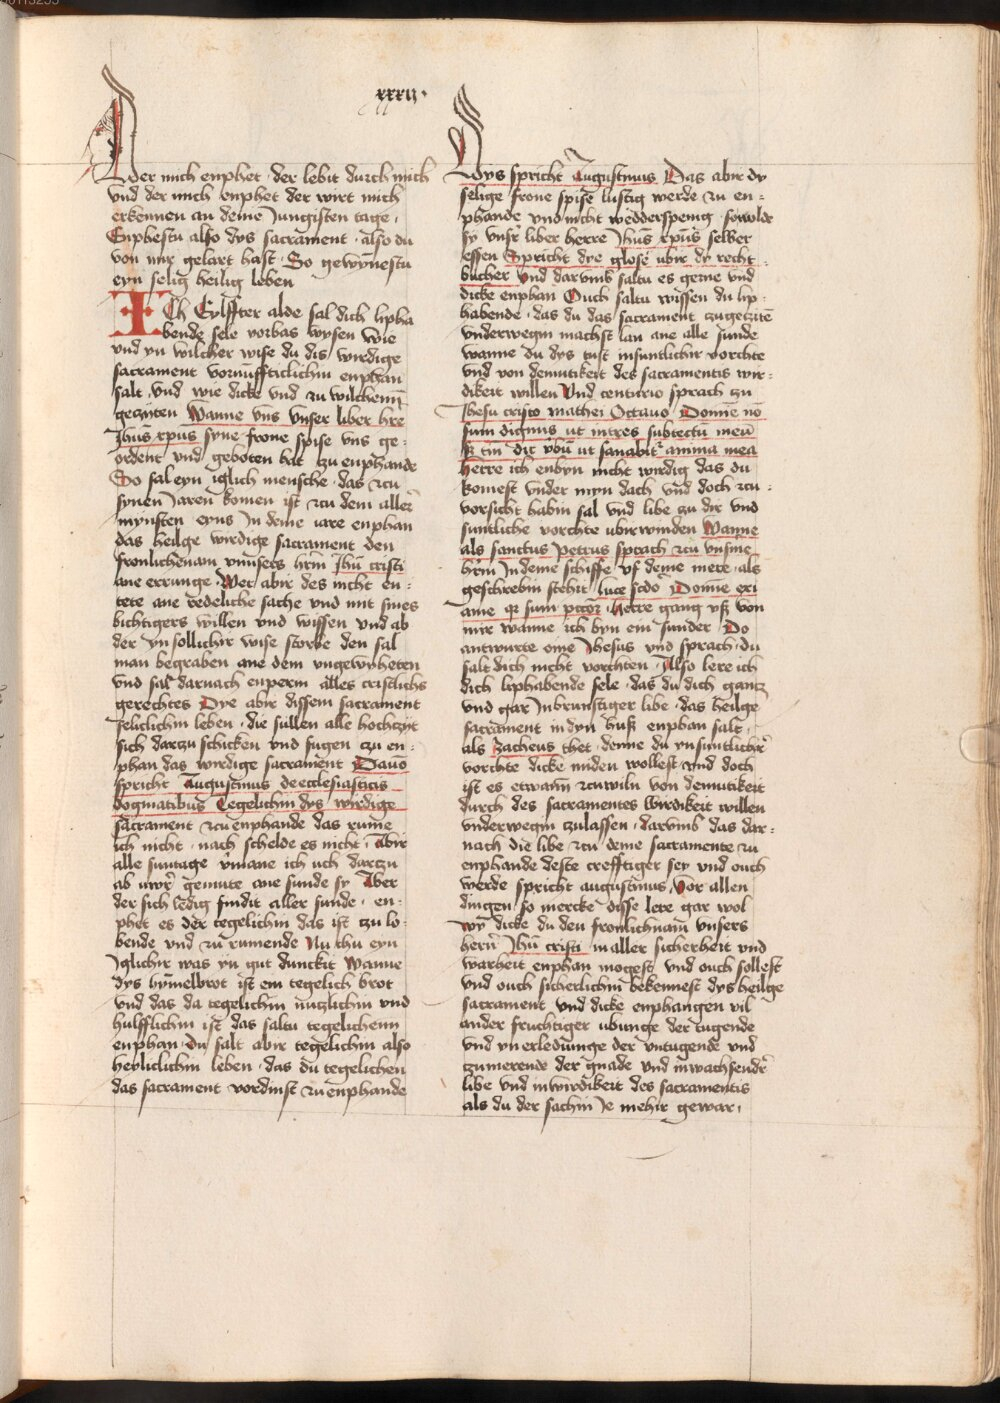 xxxij.
Wer mich enphet · der lebit durch mich
vnd der mich enphet der wirt mich
erkennen an deme Jungisten tage ·
Enphestu also dys sacrament · also du
von mir gelart hast · So gewynestu
eyn selig heilig leben
ICh Eylffter alde sal dich lipha
bende sele vorbas wysen wie
vnd yn wilcher wise du dis wirdige
sacrament vornuffticlichin enphan
salt · vnd wie dicke vnd zu wilchenn
geczyten Wanne vns vnser liber h're
Jhūs xp̄us syne frone spise vns ge-
ordent vnd geboten hat zu enphande
So sal eyn iglich mensche · das zcu
synen Jaren komen ist zcu dem aller
mynsten eyns Jn deme iare enphan
das heilge wirdige sacrament den
fronlichenam vnnsers hr̄n Jhū cristi
ane errunge · Wer abir des nicht en-
tete ane redeliche sache vnd mit sines
bichtigers willen vnd wissen vnd ab
der yn sollichir wise storbe den sal
man begraben ane dem vngewyheten
vnd sal darnach enpern alles cristlichs
gerechtes Dye abir dissem sacrament
seliclichin leben · die sullen alle hochzyt
sich darzu schicken vnd fugen czu en-
phan das wirdige sacrament Dauō
spricht Augustinus de ecclesiasticis
dogmatibus Tegelichin dys wirdige
sacrament zcu enphande das rume
ich nicht · nach schelde es nicht · Abir
alle suntage v'mane ich uch darczu
ab uwr' gemute ane sunde sy Aber
der sich ledig findit aller sunde · en-
phet es der tegelichin das ist czu lo-
bende vnd zu rumende Nu thu eyn
Jglichir was yn gut dunckit Wanne
dys hymelbrot ist ein tegelich brot
vnd das da tegelichin nutzlichin vnd
hulfflichin ist das saltu tegelichenn
enphan · du salt abir tegelichin also
heyliclichin leben · das du tegelichen
das sacrament vordinst zu enphande
Dys spricht Augustinus Das abir dy
selige frone spise lustig werde zu en-
phande vnd nicht wedderspenig · so wolde
sy vnsr' liber herre Jhūs xp̄us selber
essen Spricht dye glose ubir dy recht-
bucher Vnd darvmb saltu es gerne vnd
dicke enphan Ouch saltu wissen du lip-
habende · das du das sacrament zugeczitē
vnderwegin machst lan ane alle sunde
wanne du dys tust in suntlichir vorchte
vnd von demutikeit des sacramentis wir-
dikeit willen Vnd centurio sprach zu
Jhesu cristo mathei Octauo Domīe nō
sum dignus ut intres sub tectū meū
sȝ tm̄ dic v'bū ut sanabit' anima mea
Herre ich enbyn nicht wirdig das du
komest vnder myn dach vnd doch zcu-
vorsicht habin sal vnd libe zu dir vnd
suntliche vorchte ubirwinden Wanne
als sanctus petrus sprach zcu vnsme
hr̄n Jn deme schiffe vf deme mere · als
geschrebin stehit luce sc̄do Domīe exi
a me qȝ sum pctor · Herre gang vß von
mir wanne ich byn ein sunder Do
antwurte eme Jhesus vnd sprach · du
salt dich nicht vorchten · Also lere ich
dich liphabende sele · das du dich gantz
vnd gar Jnbrunstiger libe · das heilge
sacrament in dyn huß enphan salt ·
als Zacheus thet · denne du yn suntlichr'
vorchte dicke miden wollest vnd doch
ist es etwann zcuwiln von demutikeit
durch des sacramentes wirdikeit willen
vnderwegin czulassen · darvmb das dar-
nach die libe zcu deme sacramente zu
enphande deste crefftiger sey vnd ouch
werde spricht augustinus Vor allen
dingen so mercke disse lere gar wol
wy dicke du den fronlichnam vnsers
hern̄ Jhū cristi in aller sicherheit vnd
warheit enphan mogest vnd ouch sollest
vnd ouch sicherlichin bekennest dys heilge
sacrament vnd dicke enphangen vil
ander fruchtiger ubunge der tugende
vnd yn erledunge der vntugende vnd
czunerende der gnade vnd in wachsendr'
libe vnd in wirdikeit des sacramentis
als du der sachin Je mehir gewar ·